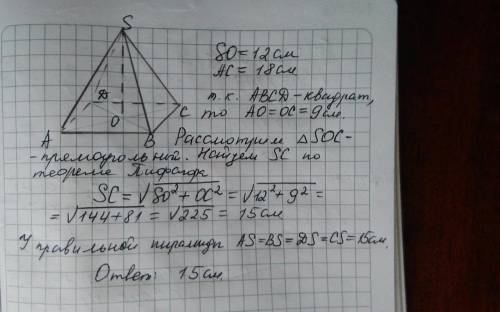 S
SO = 12 см
AC = 18 см
D
C
т.к. ABCD - квадрат,
A
O
B
то AO = OC = 9 см.
Рассмотрим △SOC -
- прямоугольный. Найдем SC по
теореме Пифагора
SC = √SO² + OC² = √12² + 9² =
= √144 + 81 = √225 = 15 см
У правильной пирамиды AS = BS = DS = CS = 15 см.
Ответ: 15 см.